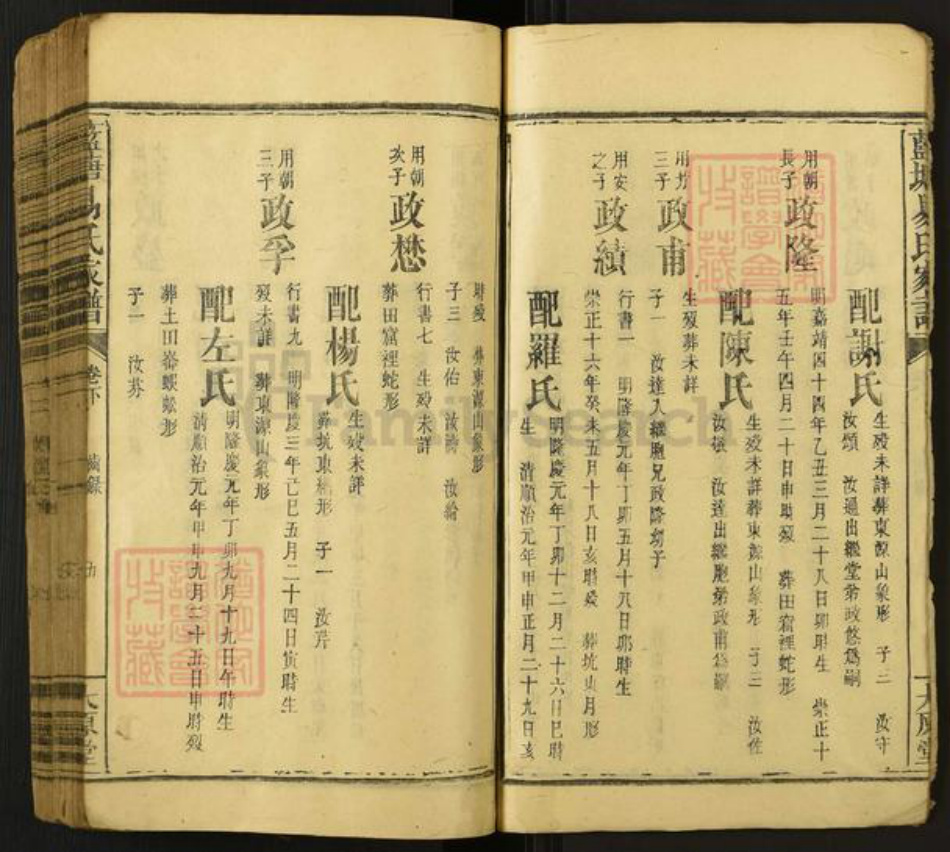 藍塘易氏家譜
太原堂
配謝氏
生歿未詳葬東源山象形 子三 汝守
汝頌 汝通出繼堂弟政悠爲嗣
用朝
長子
政隆
明嘉靖四十四年乙丑三月二十八日卯時生 崇正十
五年壬午四月二十日申時歿 葬田窩裡蛇形
配陳氏
生歿未詳葬東源山象形 子三 汝佐
汝敏 汝達出繼胞弟政甫爲嗣
三子
政甫
生歿葬未詳
子一 汝達入繼胞兄政隆幼子
用安
之子
政績
行書一 明隆慶元年丁卯五月十八日卯時生
崇正十六年癸未五月十八日亥時歿 葬坑東月形
配羅氏
明隆慶元年丁卯十二月二十六日巳時
生 清順治元年甲申正月二十九日亥
時歿 葬東源山象形
子三 汝佑 汝淸 汝綸
用朝
次子
政懋
行書七 生歿未詳
葬田窩裡蛇形
配楊氏
生歿未詳
葬坑東月形 子一 汝芹
用朝
三子
政孚
行書九 明隆慶三年己巳五月二十四日寅時生
歿未詳 葬東源山象形
配左氏
明隆慶元年丁卯九月十九日午時生
清順治元年甲申九月二十五日申時歿
葬土田崙蜈蚣形
子一 汝芬
藍塘易氏家譜
卷下
五
太原堂
FamilySearch